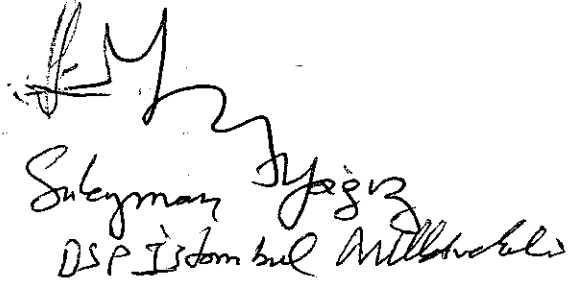 Süleyman Yağız
DSP İstanbul Milletvekili